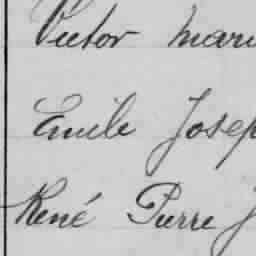 Victor Mari
Emile Josep
René Pierre J